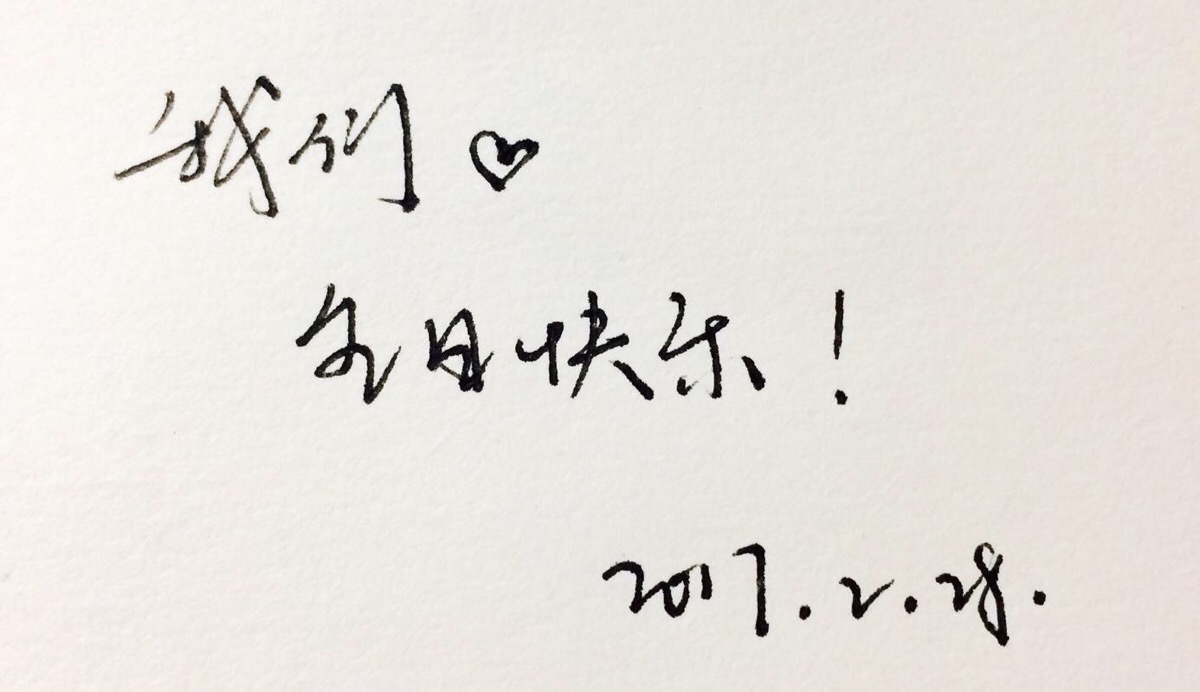 我们♡
生日快乐！
2017.2.28.